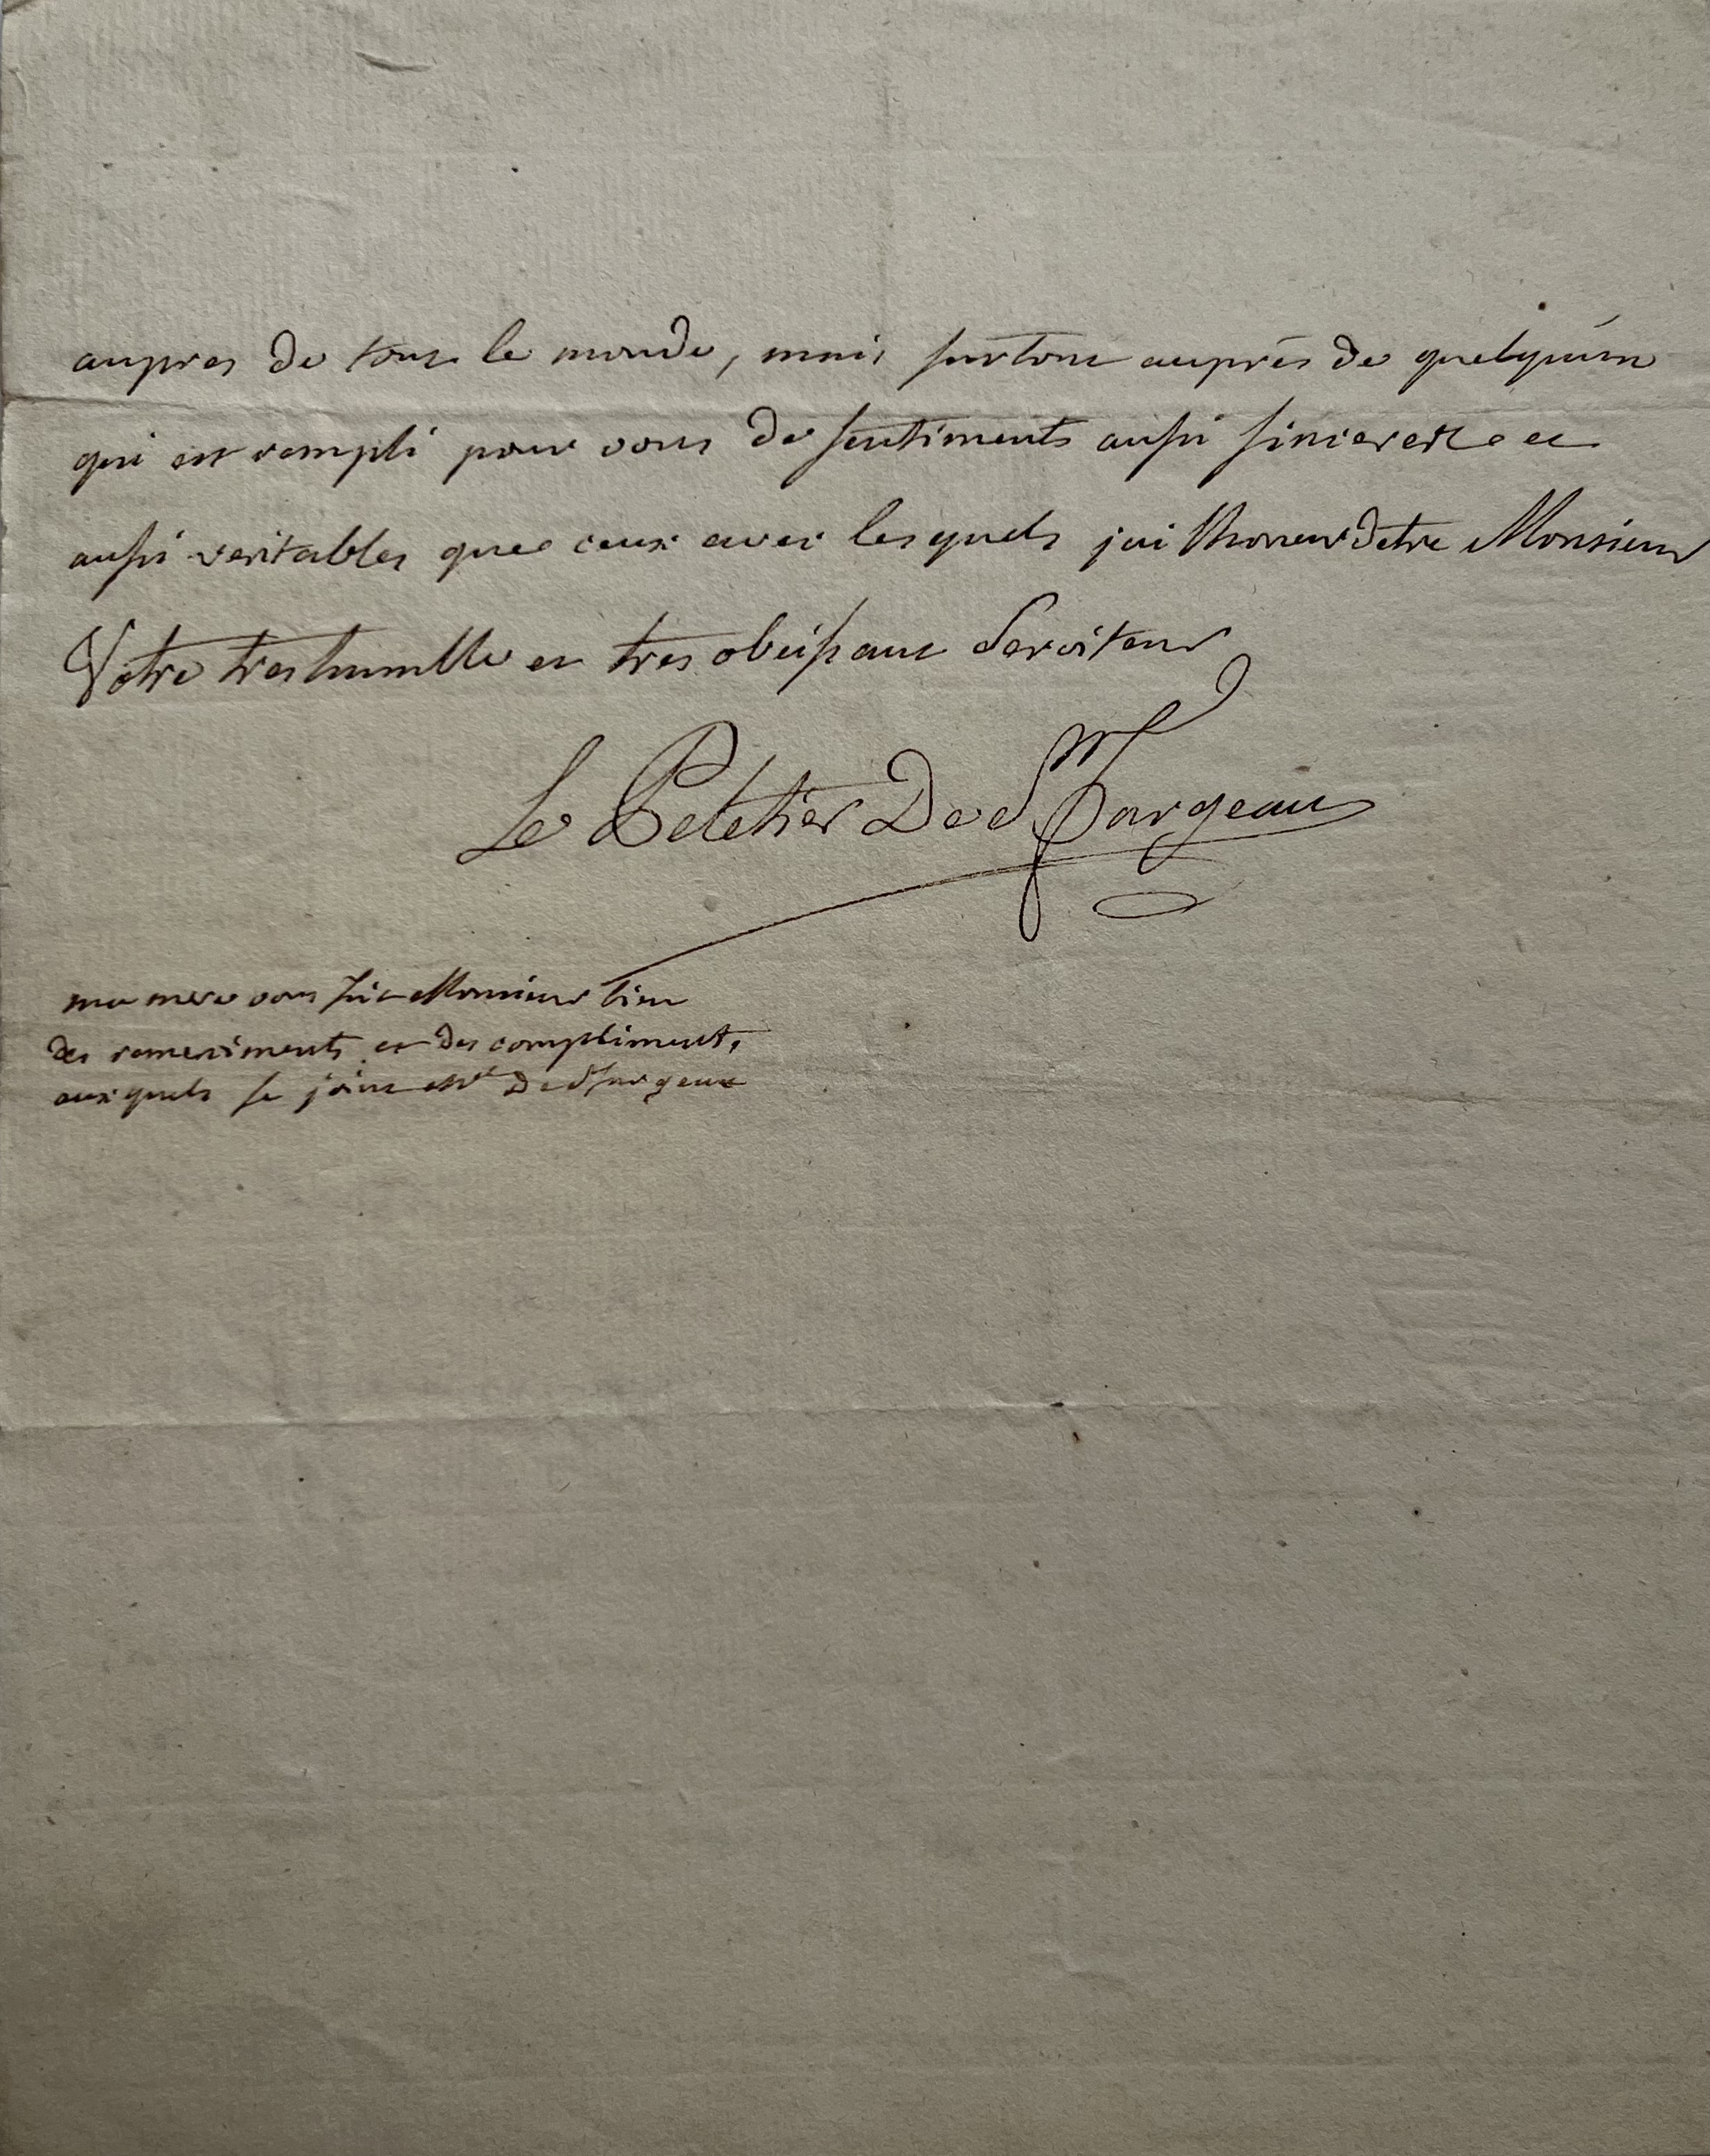 aupres de tout le monde, mais surtout auprès de quelquún
qui est rempli pour vous de sentiments aussi sinceres et
aussi veritables que ceux avec lesquels jai lhoneur detre Monsieur
Votre tres humble et tres obeissant Serviteur
Le Peletier De St fargeau
ma mere vous fait Monsieur bien
des remerciments et des compliments,
auxquels se joint Me De St fargeau